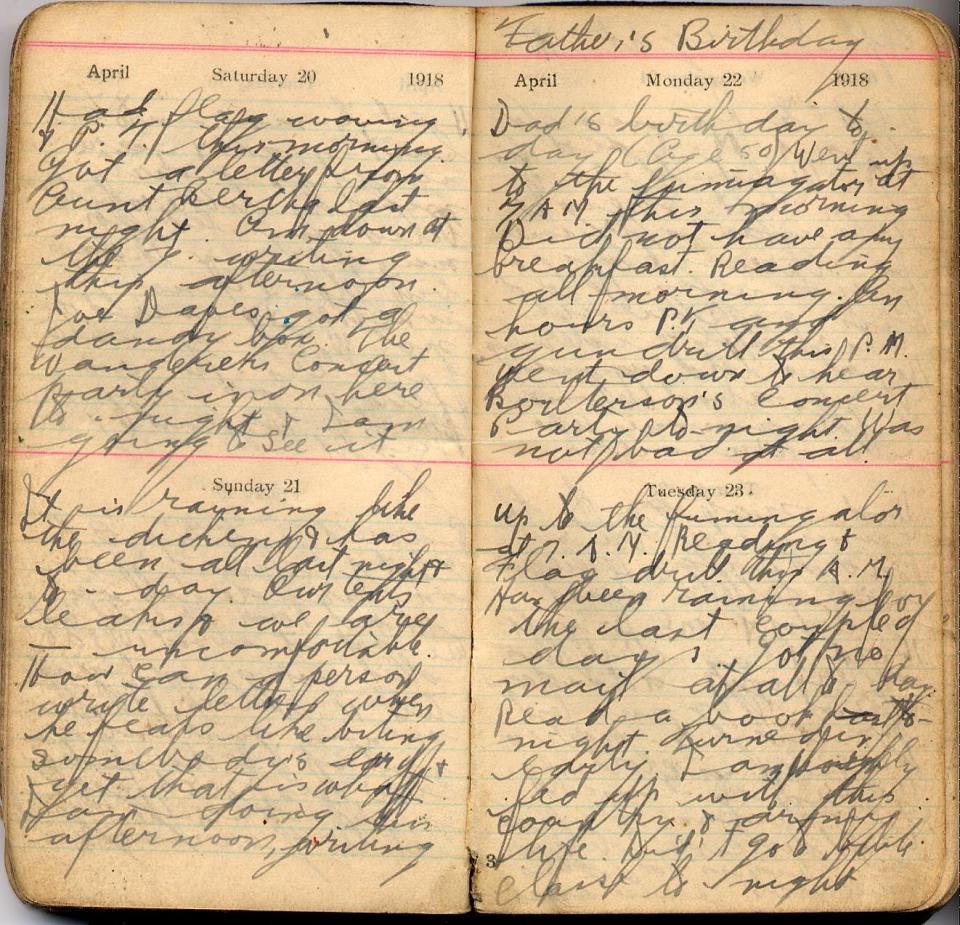 April Saturday 20 1918
Had flag waving
& P. T. this morning.
Got a letter from
Aunt Bertha last
night. Am down at
the Y. writing
this afternoon.
Joe Daves got a
dandy box. The
Wanderers Concert
party is on here
to-night & I am
going to see it
Sunday 21
It is rayning like
the dickens & has
been all last night &
to-day. Our tents
leak so we are
uncomfortable.
How can a person
write letters when
he feals like biting
somebody's ear off &
yet that is what
I am doing this
afternoon, writing
Father's Birthday
April Monday 22 1918
Dad's birthday to
day (Age 50) Went up
to the fumagator at
7 A M. this morning
Did not have any
breakfast. Reading
all morning. An
hours P.T. and
gun drill this P. M.
Went down to hear
concert
Party to-night. Was
not bad at all
Tuesday 23
up to the fumingator
at 7. A. M. Reading &
Flag drill this A. M.
Has been raining for
the last couple of
days. Got no
mail at all to day.
Read a book to-
night. Turned in
early. I am
fed up with this
country & army
life.
class to night
3